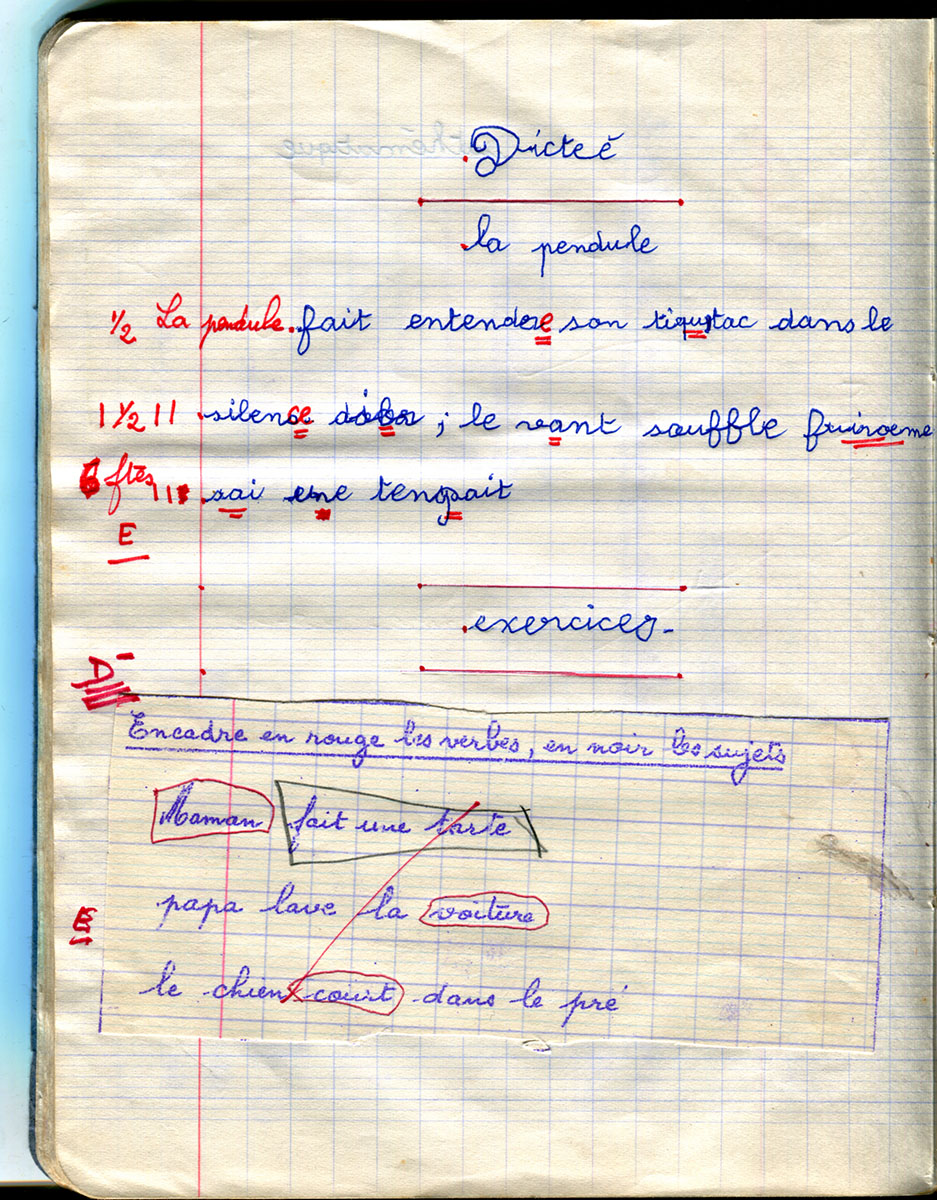 Dicteé
la pendule
1/2 La pendule fait entendere son tiqustac dans le
1 1/2 11 silence ; le vant souffle
6 ftes 11 sai une tenpait
E
exercices
D-
Encadre en rouge les verbes, en noir les sujets
Maman fait une tarte
papa lave la voiture
E
le chien court dans le pré